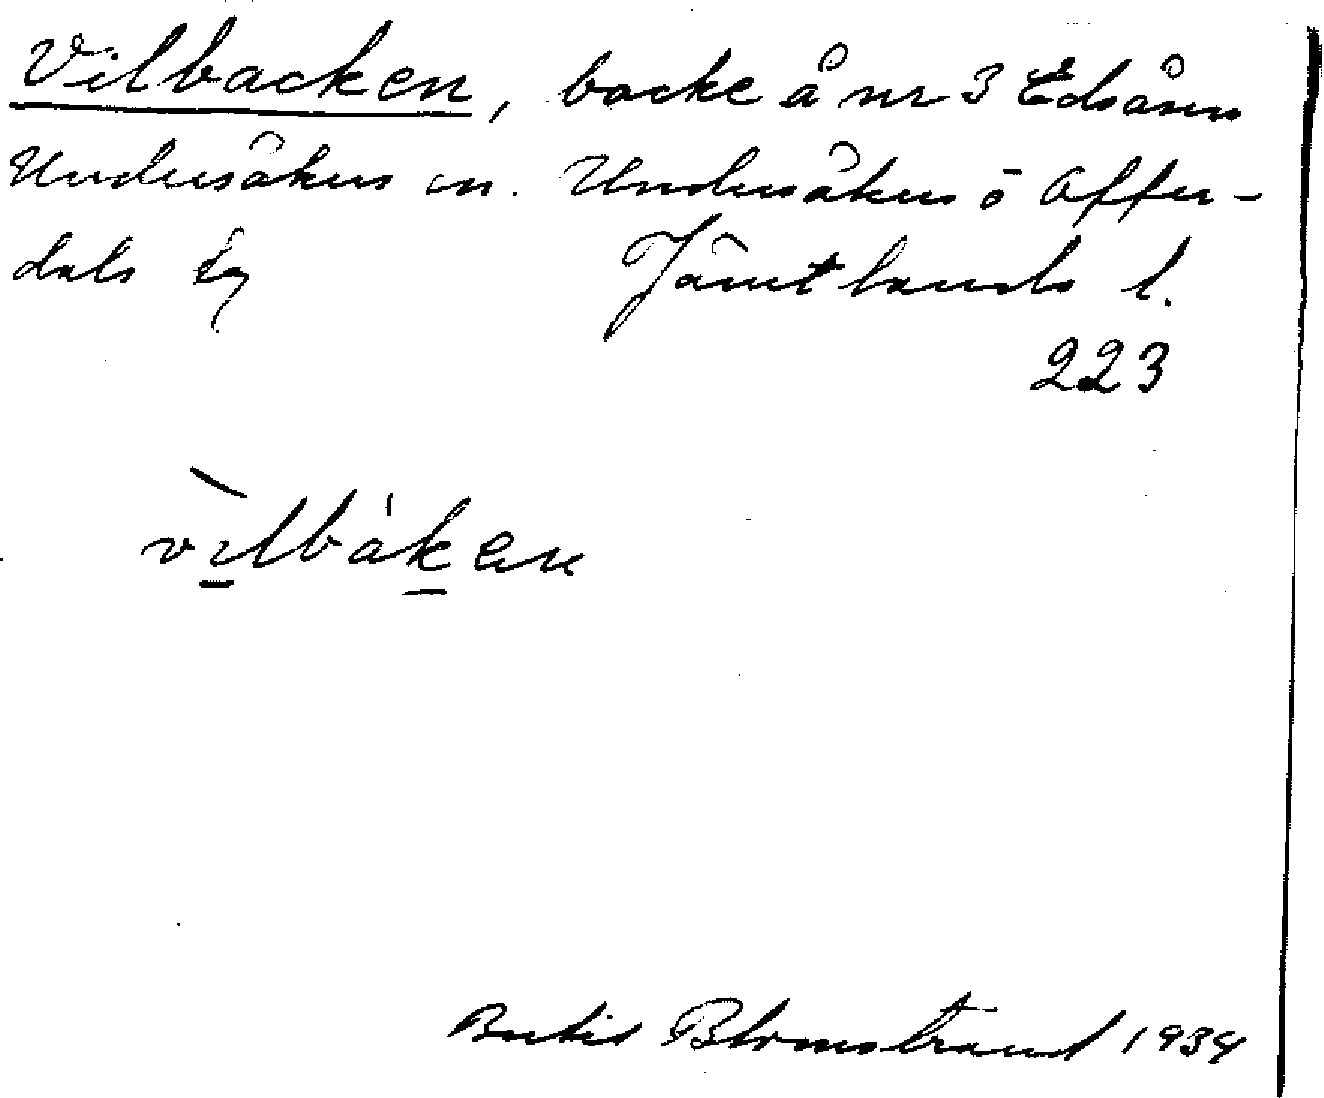 Vilbacken, backe å nr 3 Edsåsen
Undersåkers sn. Undersåkers o Offer-
dals tg Jämtlands l.
223
vìlbák en
Bertil Blomstrand 1934